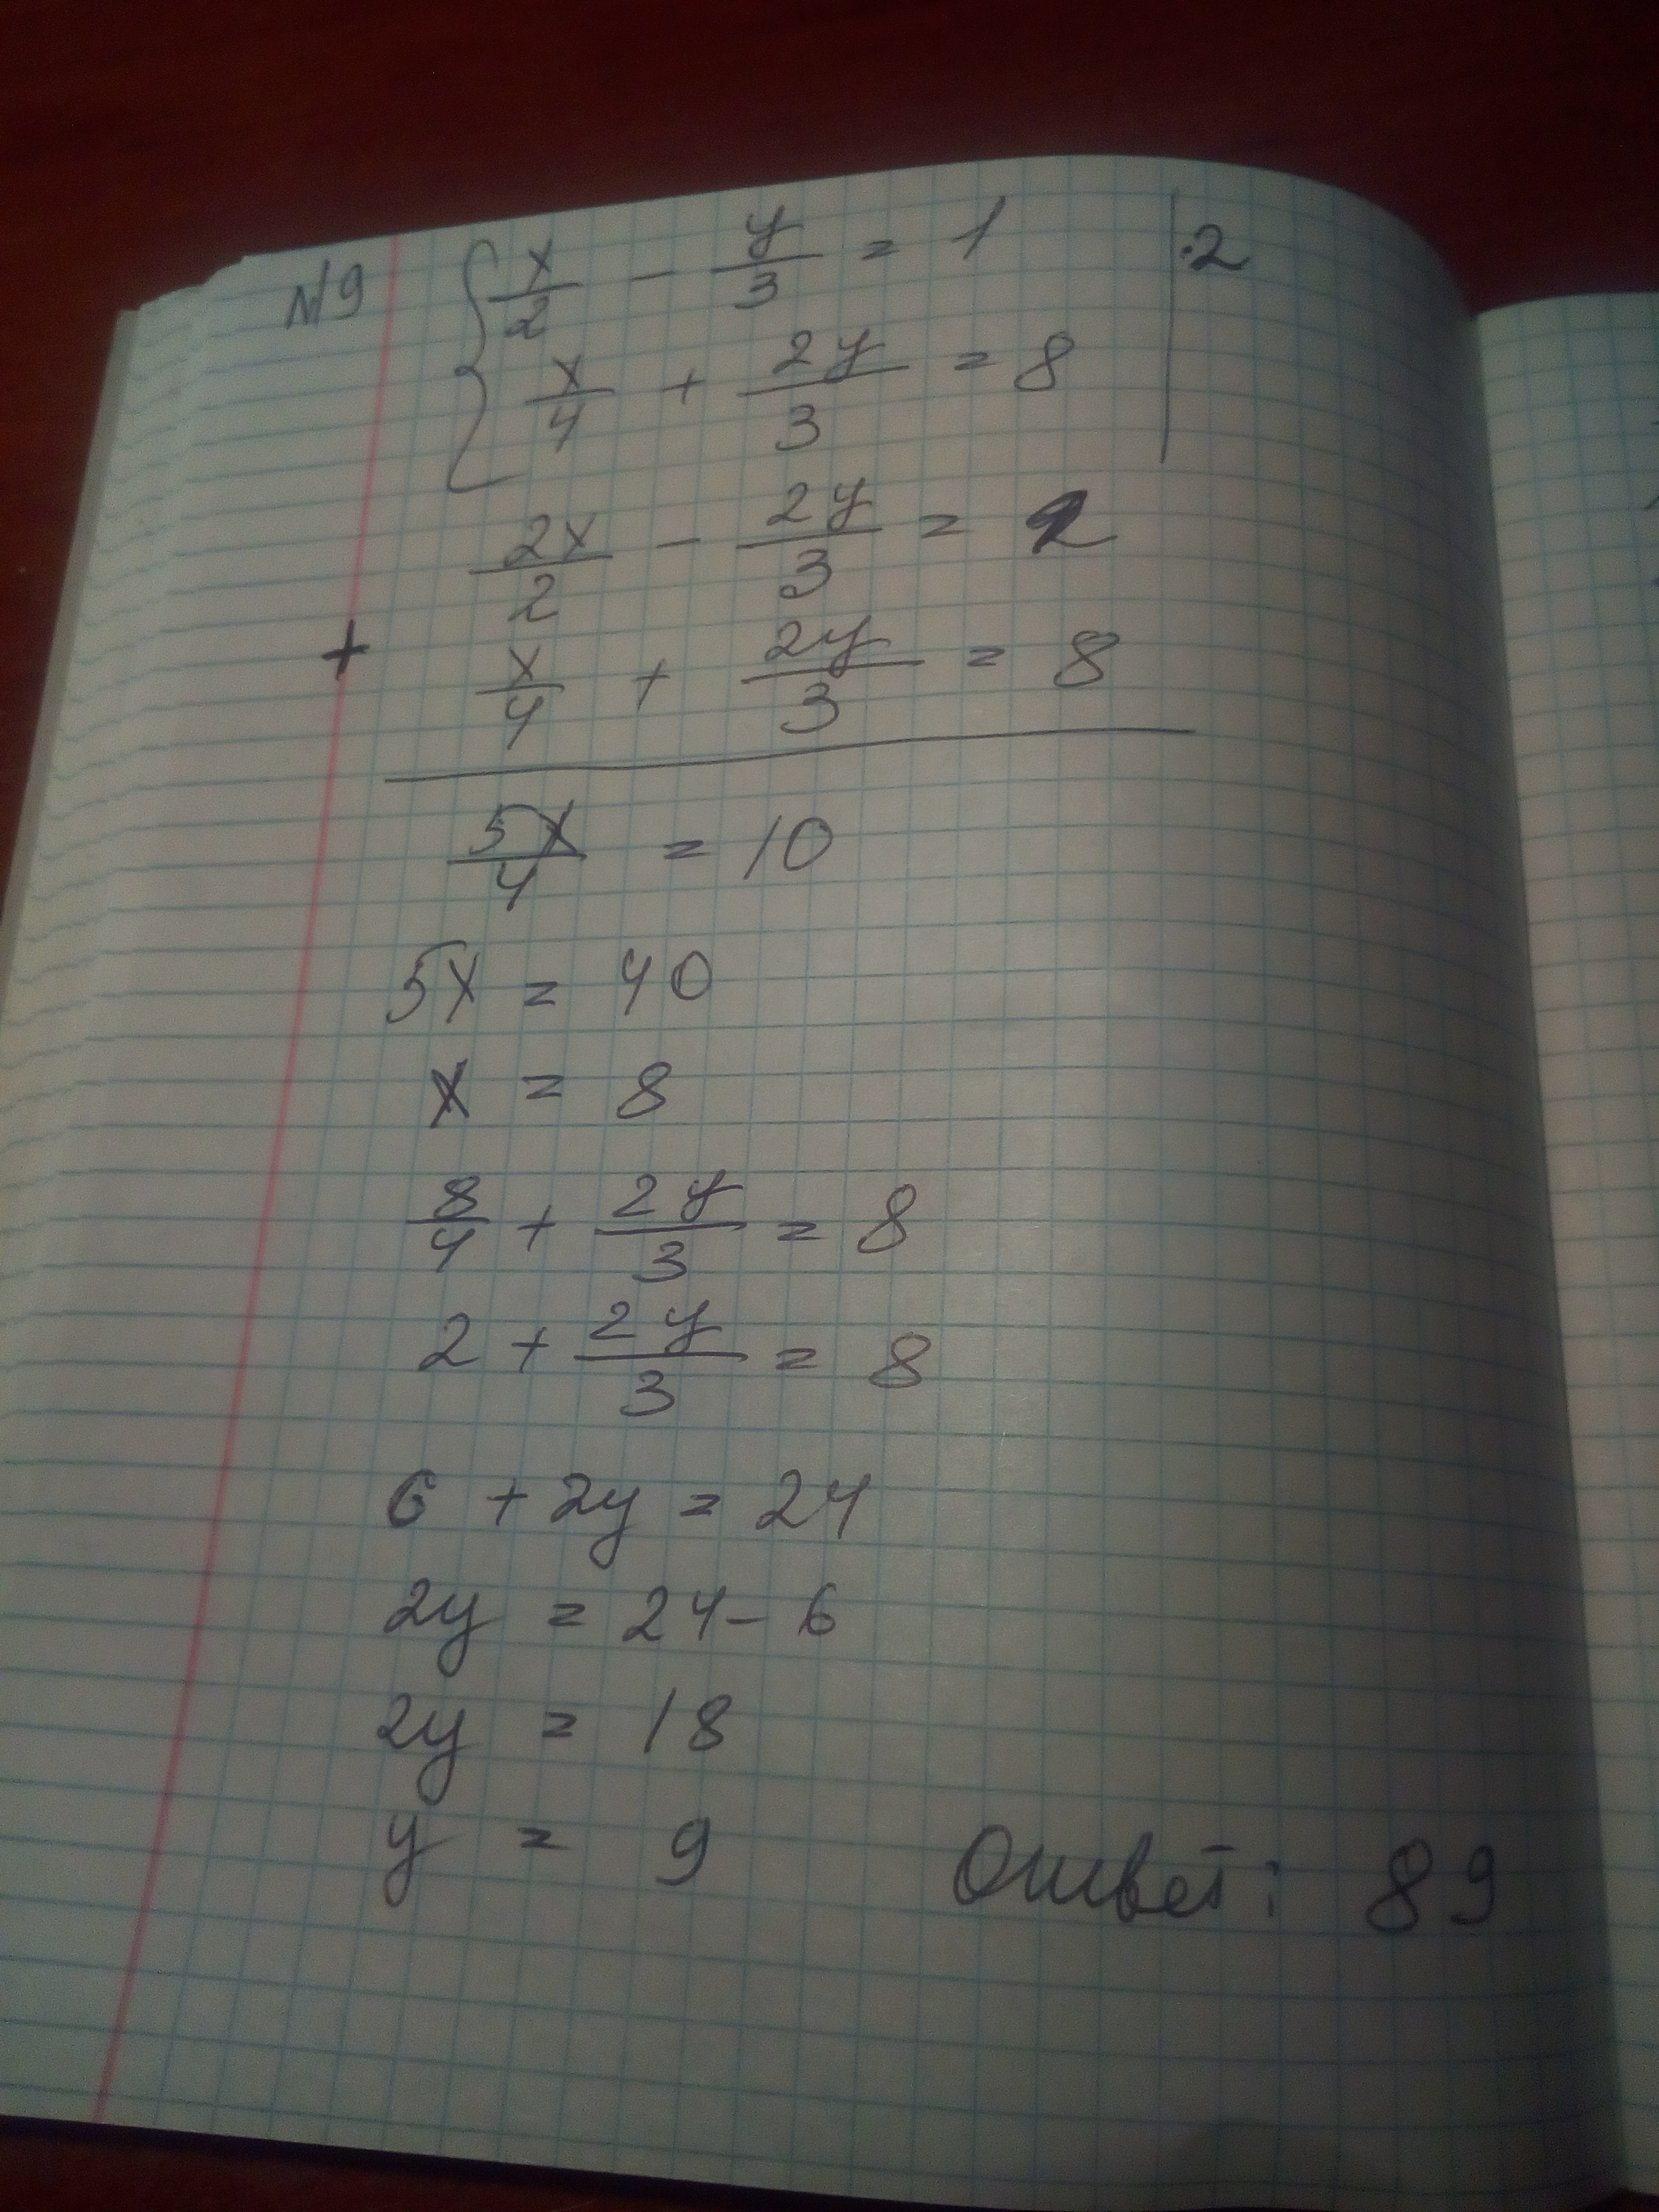 №9 { x/2 - y/3 = 1 | ·2
x/4 + 2y/3 = 8
2x/2 - 2y/3 = 2
+ x/4 + 2y/3 = 8
5x/4 = 10
5x = 40
x = 8
8/4 + 2y/3 = 8
2 + 2y/3 = 8
6 + 2y = 24
2y = 24 - 6
2y = 18
y = 9
Ответ: 89